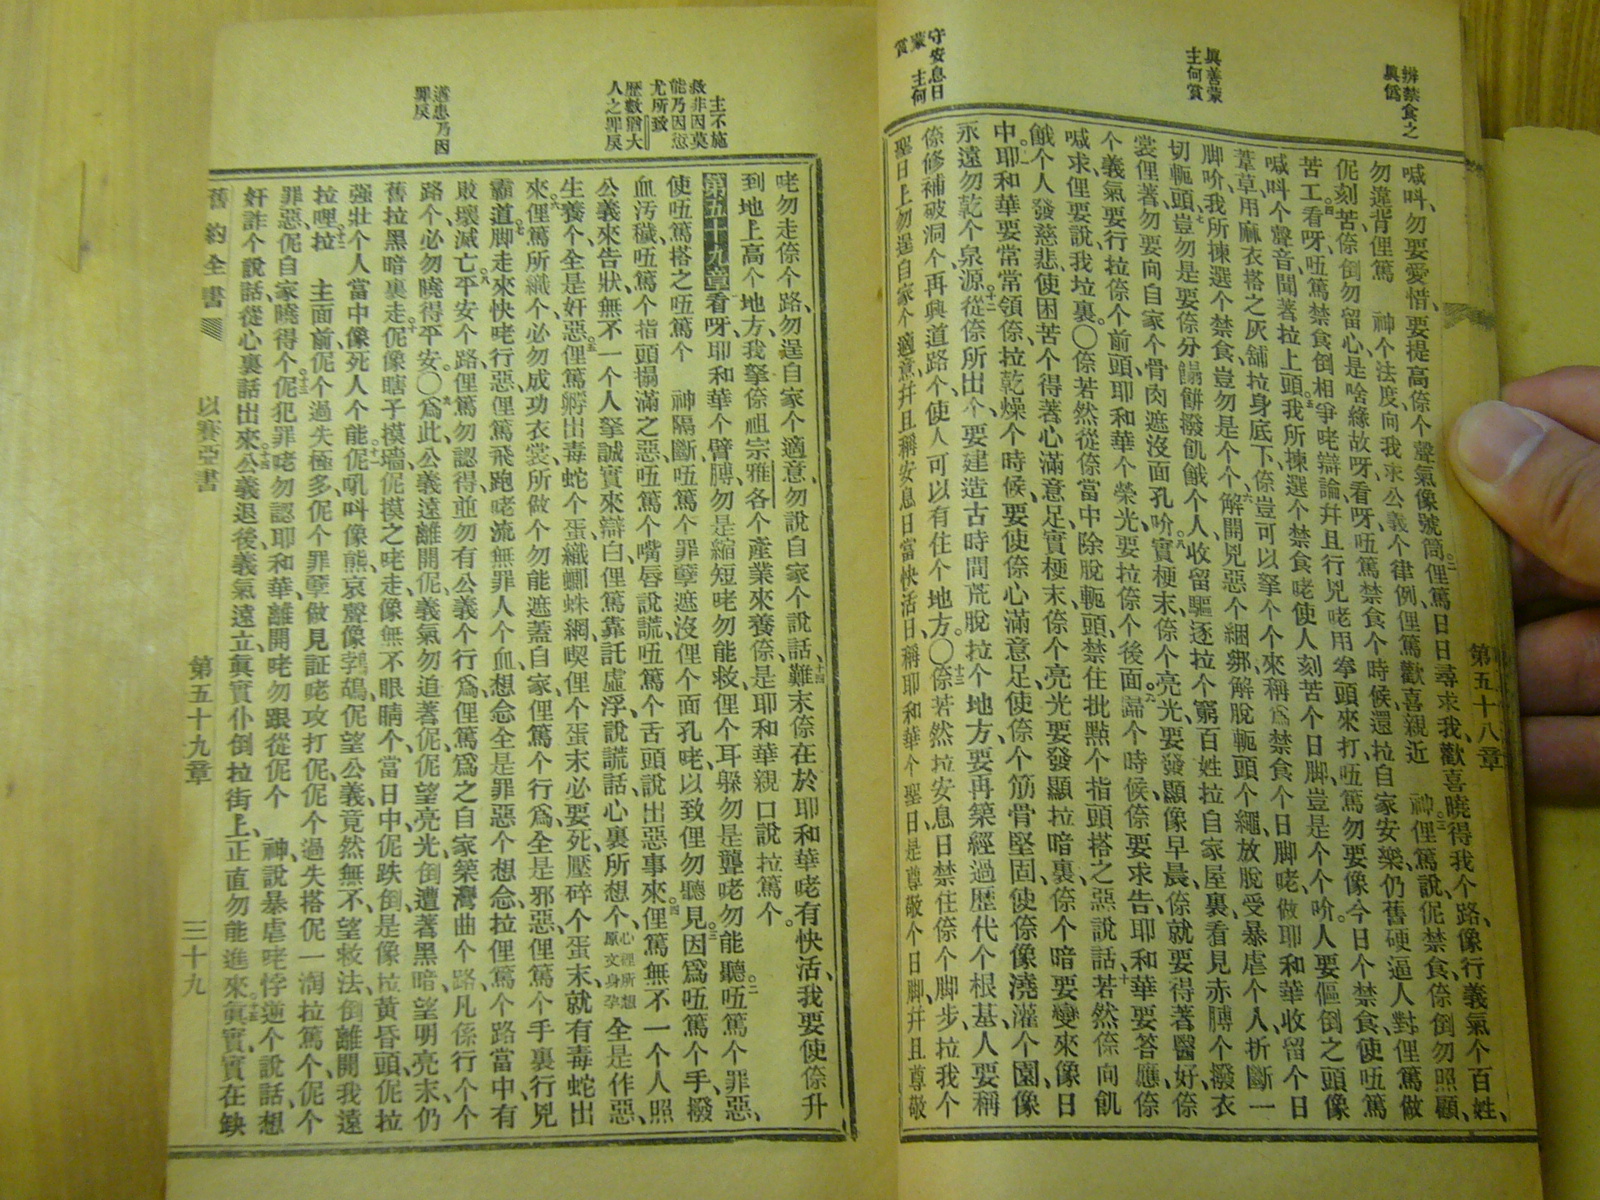 辨禁食之
真僞
眞善蒙
主何賞
守安息日
蒙主何
賞
第五十八章
喊呌、勿要愛惜、要提高㑚个聲氣像號筒。俚篤日日尋求我、歡喜曉得我个路、像行義氣个百姓、
勿違背俚篤　神个法度、向我求公義个律例、俚篤歡喜親近　神。俚篤說、伲禁食、㑚倒勿照顧、
伲刻苦、㑚倒勿留心、是啥緣故呀、看呀、㕶篤禁食个時候、還拉自家安樂、仍舊硬逼人對俚篤做
苦工。看呀、㕶篤禁食倒相爭咾辯論、幷且行兇咾用拳頭來打、㕶篤勿要像今日个禁食、使㕶篤
喊呌个聲音、聞著拉上頭。我所揀選个禁食咾使人刻苦个日脚、豈是个个吤。人要傴倒之頭像
葦草、用麻衣搭之灰舖拉身底下、㑚豈可以拏个个來稱爲禁食个日脚咾、做耶和華收留个日
脚吤。我所揀選个禁食、豈勿是个个、解開兇惡个綑綁、解脫軛頭个繩、放脫受暴虐个人、折斷一
切軛頭。豈勿是要㑚分餅撥飢餓个人、收留驅逐拉个窮百姓拉自家屋裏、看見赤膊个、撥衣
裳俚著、勿要向自家个骨肉遮沒面孔吤。實梗末、㑚个亮光、要發顯像早晨、㑚就要得著醫好、㑚
个義氣要行拉㑚个前頭、耶和華个榮光、要拉㑚个後面。歸个時候、㑚要求告、耶和華要答應、㑚
喊求、俚要說、我垃裏。〇㑚若然從㑚當中除脫軛頭、禁住批點个指頭搭之惡說話。若然㑚向飢
餓个人發慈悲、使困苦个得著心滿意足、實梗末、㑚个亮光要發顯拉暗裏、㑚个暗要變來像日
中。耶和華要常常領㑚、拉乾燥个時候、要使㑚心滿意足、使㑚个筋骨堅固、使㑚像澆灌个園、像
永遠勿乾个泉源。從㑚所出个、要建造古時間荒脫拉个地方、要再築經過歷代个根基、人要稱
㑚修補破洞个、再興道路个、使人可以有住个地方。〇㑚若然拉安息日禁住㑚个脚步、拉我个
聖日上勿逞自家个適意、幷且稱安息日當快活日、稱耶和華个聖日是尊敬个日脚、幷且尊敬
主不施
救非因莫
能乃因愆
尤所致
歷數猶大
人之罪戾
遘患乃因
罪戾
咾勿走㑚个路、勿逞自家个適意、勿說自家个說話、難末㑚在於耶和華咾有快活、我要使㑚升
到地上高个地方、我拏㑚祖宗雅各个產業來養㑚、是耶和華親口說拉篤个。
第五十九章看呀、耶和華个臂膊、勿是縮短咾勿能救、俚个耳朶、勿是聾咾勿能聽。㕶篤个罪惡、
使㕶篤搭之㕶篤个　神隔斷、㕶篤个罪孽遮沒俚个面孔咾、以致俚勿聽見。因爲㕶篤个手、撥
血汚穢、㕶篤个指頭搨滿之惡、㕶篤个嘴唇說謊、㕶篤个舌頭說出惡事來。俚篤無不一个人照
公義來告狀、無不一个人拏誠實來辯白、俚篤靠託虛浮、說謊話、心裏所想个、心裡所想原文身孕全是作惡、
生養个、全是奸惡。俚篤孵出毒蛇个蛋、織蜘蛛網、喫俚个蛋末、必要死、壓碎个蛋末、就有毒蛇出
來。俚篤所織个、必勿成功衣裳、所做个、勿能遮蓋自家、俚篤个行爲、全是邪惡、俚篤个手裏行兇
霸道。脚走來快咾行惡、俚篤飛跑咾流無罪人个血、想念全是罪惡个想念、拉俚篤个路當中、有
敗壞滅亡。平安个路、俚篤勿認得、並勿有公義个行爲、俚篤爲之自家築灣曲个路、凡係行个个
路个、必勿曉得平安。〇爲此、公義遠離開伲、義氣勿追著伲、伲望亮光、倒遭著黑暗、望明亮末、仍
舊拉黑暗裏走。伲像瞎子摸墻、伲摸之咾走、像無不眼睛个、當日中伲跌倒、是像垃黃昏頭、伲拉
强壯个人當中、像死人个能。伲吼呌像熊、哀聲像鵓鴣、伲望公義、竟然無不、望救法、倒離開我遠
拉哩。拉　主面前、伲个過失極多、伲个罪孽做見証咾攻打伲、伲个過失搭伲一淘拉篤个、伲个
罪惡、伲自家曉得个。伲犯罪咾勿認耶和華、離開咾勿跟從伲个　神、說暴虐咾悖逆个說話、想
奸詐个說話、從心裏話出來。公義退後、義氣遠立、眞實仆倒拉街上、正直勿能進來。眞實實在缺
舊約全書
以賽亞書
第五十九章
三十九